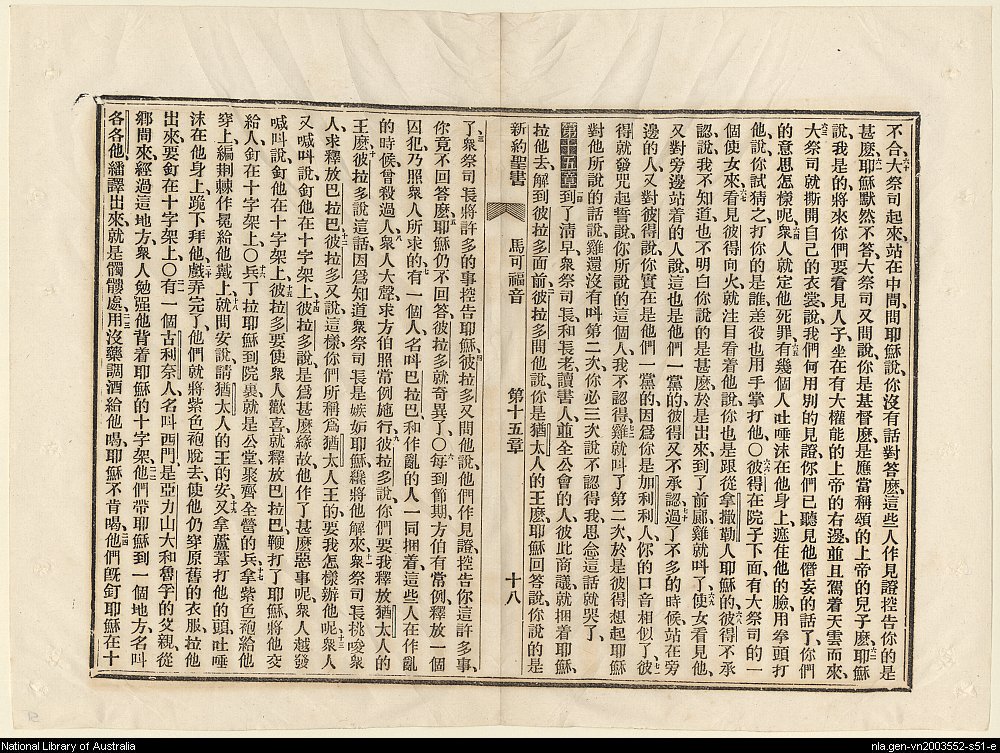 不合大祭司起來站在中間問耶穌說你沒有話對答麽這些人作見證控告你的是
甚麽耶穌默然不答大祭司又問說你是基督麽是應當稱頌的上帝的兒子麽耶穌
說我是的將來你們要看見人子坐在有大權能的上帝的右邊並且駕着天雲而來
大祭司就撕開自己的衣裳說我們何用別的見證你們已聽見他僭妄的話了你們
的意思怎樣呢衆人就定他死罪有幾個人吐唾沫在他身上遮住他的臉用拳頭打
他說你試猜之打你的是誰差役也用手掌打他〇彼得在院子下面有大祭司的一
個使女來看見彼得向火就注目看着他說你也是跟從拿撒勒人耶穌的彼得不承
認說我不知道也不明白你說的是甚麽於是出來到了前廊雞就呌了使女看見他
又對旁邊站着的人說這也是他們一黨的彼得又不承認過了不多的時候站在旁
邊的人又對彼得說你實在是他們一黨的因爲你是加利利人你的口音相似了彼
得就發咒起誓說你所說的這個人我不認得雞就呌了第二次於是彼得想起耶穌
對他所說的話雞還沒有呌第二次你必三次說不認得我思念這話就哭了
第十五章到了清早衆祭司長和長老讀書人並全公會的人彼此商議就捆着耶穌
拉他去解到彼拉多面前彼拉多問他說你是猶太人的王麽耶穌回答說你說的是
新約聖書 馬可福音 第十五章 十八
了衆祭司長將許多的事控告耶穌彼拉多又問他說他們作見證控告你這許多事
你竟不回答麽耶穌仍不回答彼拉多就奇異了〇每到節期方伯有常例釋放一個
囚犯乃照衆人所求的有一個人名呌巴拉巴和作亂的人一同捆着這些人在作亂
的時候曾殺過人衆人大聲求方伯照常例施行彼拉多說你們要我釋放猶太人的
王麽彼拉多說這話因爲知道衆祭司長是嫉妬耶穌纔將他解來衆祭司長挑唆衆
人求釋放巴拉巴彼拉多又說這樣你們所稱爲猶太人王的要我怎樣辦他呢衆人
又喊呌說釘他在十字架上彼拉多說是爲甚麽緣故他作了甚麽惡事呢衆人越發
喊呌說釘他在十字架上彼拉多要使衆人歡喜就釋放巴拉巴鞭打了耶穌將他交
給人釘在十字架上〇兵丁拉耶穌到院裏就是公堂聚齊全營的兵拿紫色袍給他
穿上編荆棘作冕給他戴上就問安說請猶太人的王的安又拿蘆葦打他的頭吐唾
沫在他身上跪下拜他戲弄完了他們就將紫色袍脫去使他仍穿原舊的衣服拉他
出來要釘在十字架上〇有一個古利奈人名呌西門是亞力山大和魯孚的父親從
鄉間來經過這地方衆人勉强他背着耶穌的十字架他們帶耶穌到一個地方名呌
各各他繙譯出來就是髑髏處用沒藥調酒給他喝耶穌不肯喝他們旣釘耶穌在十
National Library of Australia
nla.gen-vn2003552-s51-e